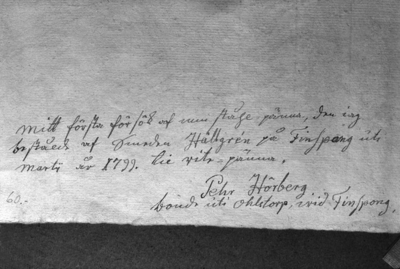 Mitt första försök af min stahl pänna, den iag
bestäelt af Smeden Hällgrén på Finspang uti
Marti år 1799. til rit-panna.
Pehr Hörberg
bonde uti Ohlstorp, wid Finspong.
60.-